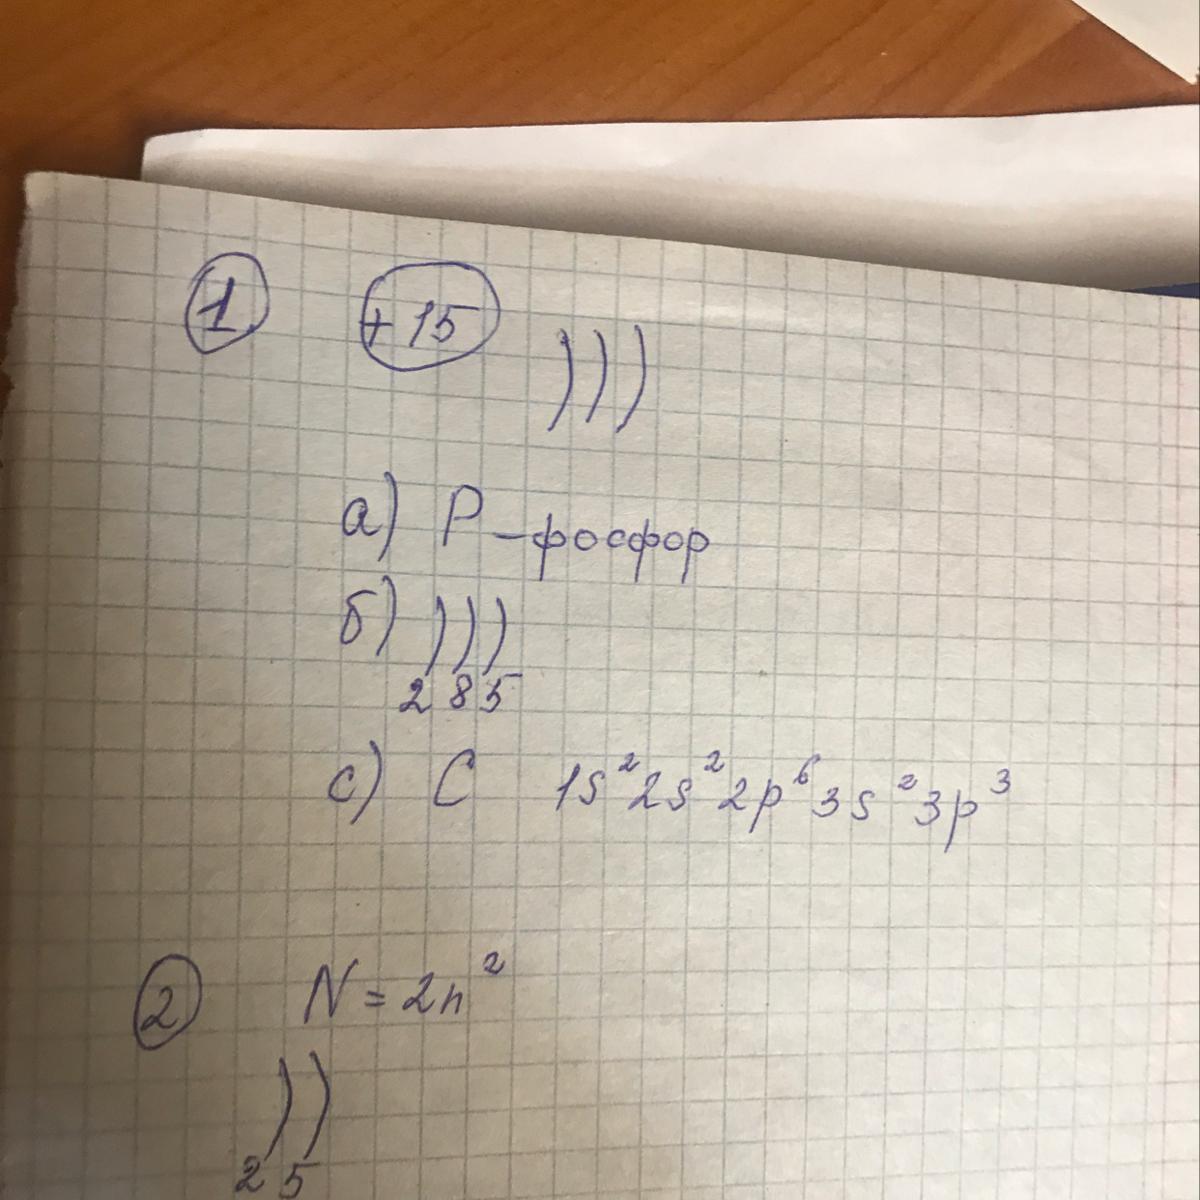 1 +15 )))
а) P - фосфор
б) )))
2 8 5
с) C 1s²2s²2p⁶3s²3p³
2 N = 2n²
))
2 5